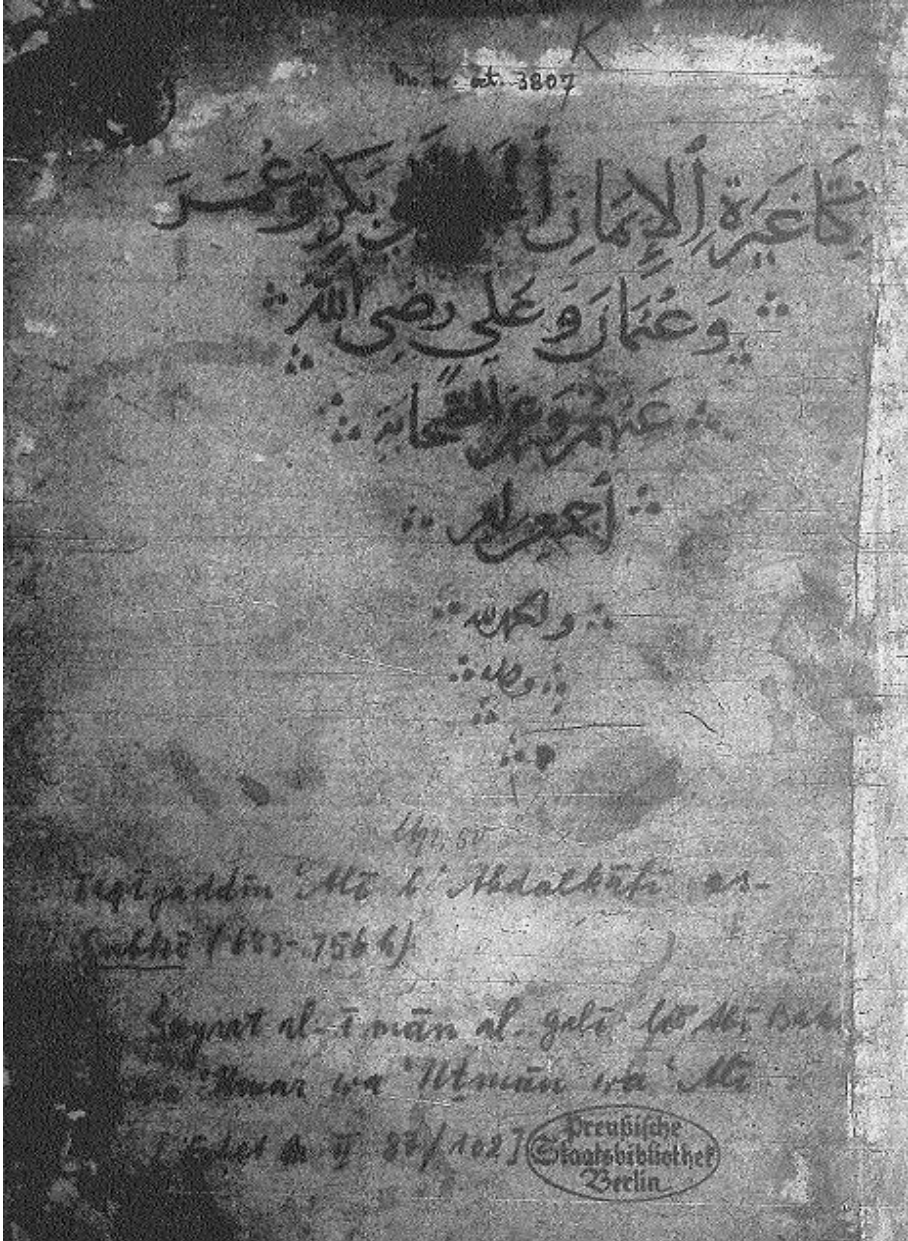 K
Ms. or. oct. 3807
غَيْرَةِ ٱلْإِيمَانِ بَكْرٍ وَعُمَرَ
وَعُثْمَانَ وَعَلِي رضِي اللّٰه
عَنْهُمْ وَعَنِ الصَّحابَة
أجمعين
والحمد لله
وحده
Taqīyaddīn ʿAlī b ʿAbdalkāfī as-
Subkī (683-756 h)
Ġayrat al-īmān al-ǧalī li Abī Bakr
wa ʿUmar wa ʿUṯmān wa ʿAlī
II 87/102]
Preußische
Staatsbibliothek
Berlin